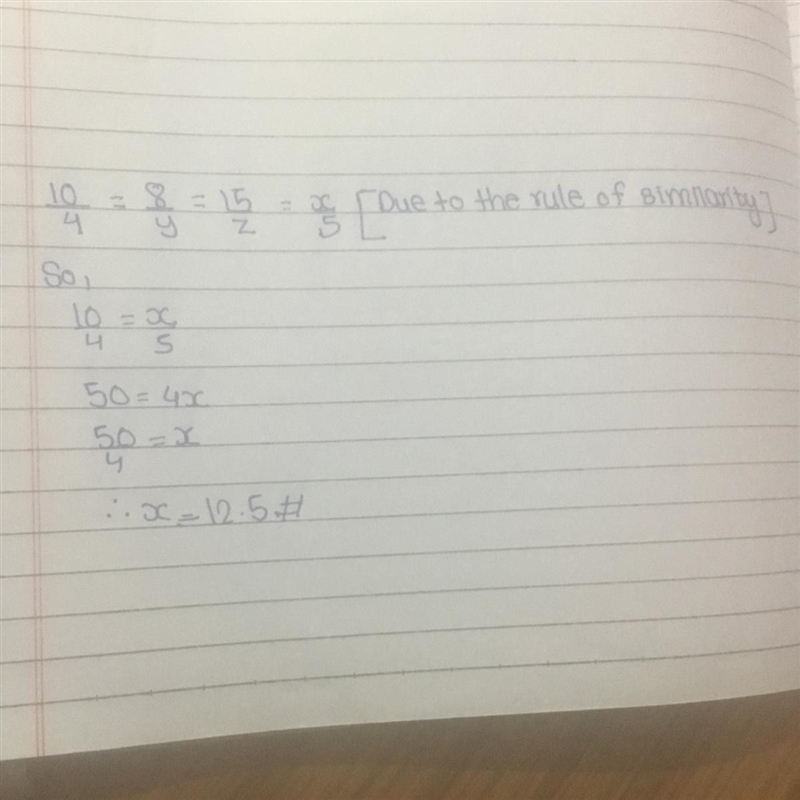 10/4 = 8/y = 15/z = x/5 [Due to the rule of similarity]
So,
10/4 = x/5
50 = 4x
50/4 = x
∴ x = 12.5 #